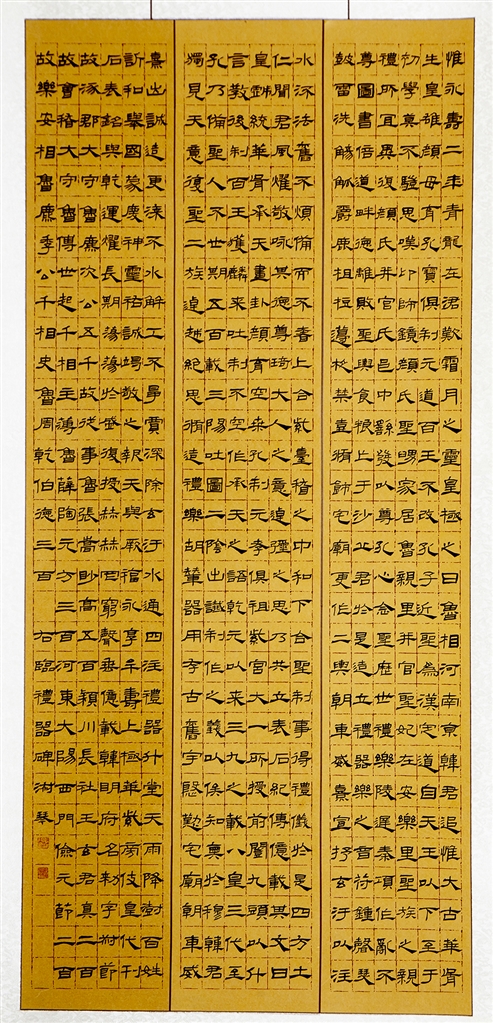 惟永壽二年青龍在涒歎霜月之靈皇極之日魯相河南京韓君追惟大古華胥
生皇雄顏母育孔寶俱制元道百王不改孔子近聖為漢定道自天王以下至于
初學莫不驥思嘆卬師鏡顏氏聖舅家居魯親里并官聖妃在安樂里聖族之親
禮所宜異復顏氏并官氏邑中繇發以尊孔心念聖歷世禮樂陵遲秦項作亂不
尊圖書倍道畔德離敗聖輿食糧亡于沙丘君於是造立禮器樂之音符鍾磬瑟
鼓雷洗觴觚爵鹿柤梪籩柉禁壺脩飾宅廟更作二輿朝車威熹宣抒玄汙以注
水流法舊不煩備而不奢上合紫臺稽之中和下合聖制事得禮儀於是四方土
仁聞君風燿敬咏其德尊琦大人之意逴彌之思乃共立表石紀傳億載其文曰
皇戲統華胥承天畫卦顏育空桑孔制元孝俱祖紫宮大一所授前闓九頭以什
言教後制百王獲麟來吐制不空作承天之語乾元以來三九之載八皇三代至
孔乃備聖人不世期五百載三陽吐圖二陰出讖制作之義以俟知奧於穆韓君
獨見天意復聖二族逴越絕思脩造禮樂胡輦器用存古舊宇慇勤宅廟朝車威
熹出誠造更漆不水解工不爭賈深除玄汙水通四注禮器升堂天雨降澍百姓
訢和舉國蒙慶神靈祐誠竭敬之報天與厥福永享牟壽上極華紫旁伎皇代刊
石表銘與乾運燿長期蕩蕩於盛復授赫赫罔窮聲垂億載韓明府名勑字叔節
故涿郡大守魯麃次公五千故從事魯張嵩眇高五百穎川長社王玄君真二百
故會稽大守魯傅世起千相主簿魯薛陶元方三百河東大陽西門儉元節二百
故樂安相魯麃季公千相史魯周乾伯德三百 右臨禮器碑 淑琴